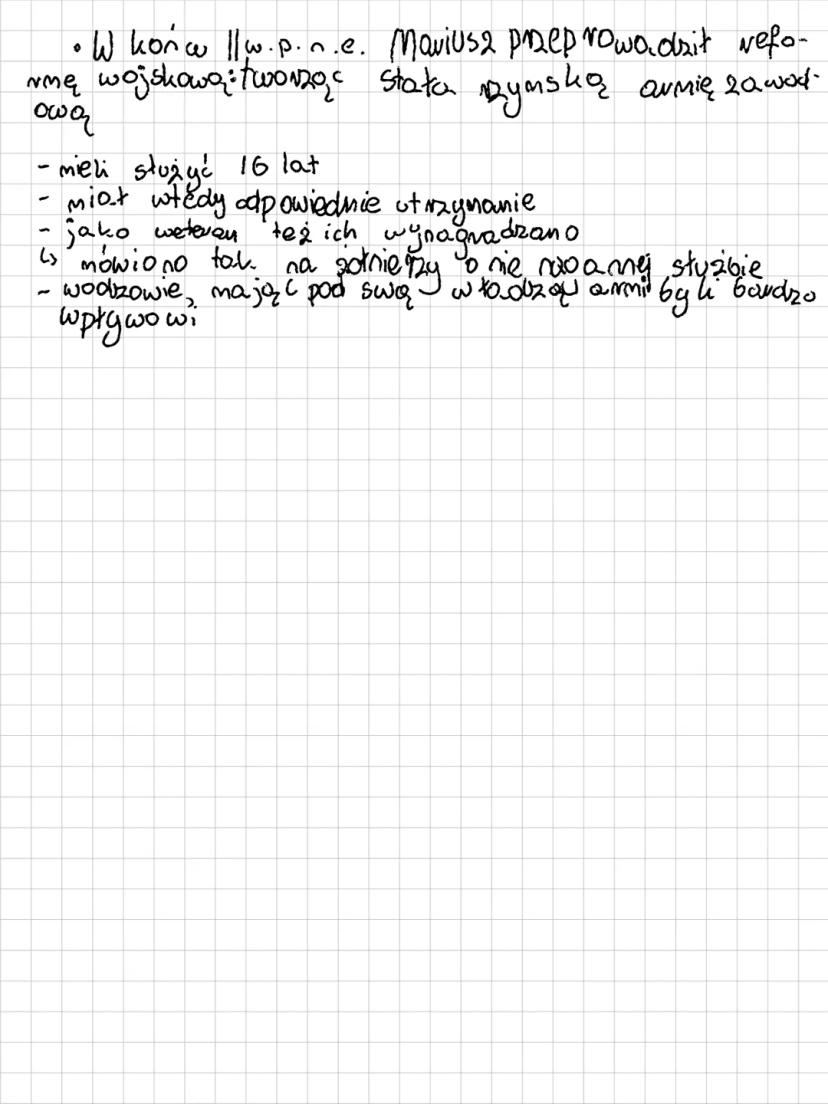 • W końcu II w.p.n.e. Mariusz przeprowadził refo-
rmę wojskową: tworząc stała rzymską armię zawod-
ową
- mieli służyć 16 lat
- miał wtedy odpowiednie utrzymanie
- jako weteran też ich wynagradzano
↳ mówiono tak na żołnierzy o nie służbie
- wodzowie, mając pod swą władzą armi byli bardzo
wpływowi